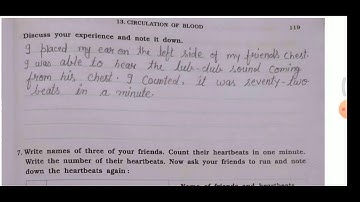 13. CIRCULATION OF BLOOD 119
Discuss your experience and note it down.
I placed my ear on the left side of my friend's chest.
I was able to hear the lub-dub sound coming
from his chest. I counted. it was seventy-two
beats in a minute
7. Write names of three of your friends. Count their heartbeats in one minute.
Write the number of their heartbeats. Now ask your friends to run and note
down the heartbeats again:
Name of friends and heartbeats